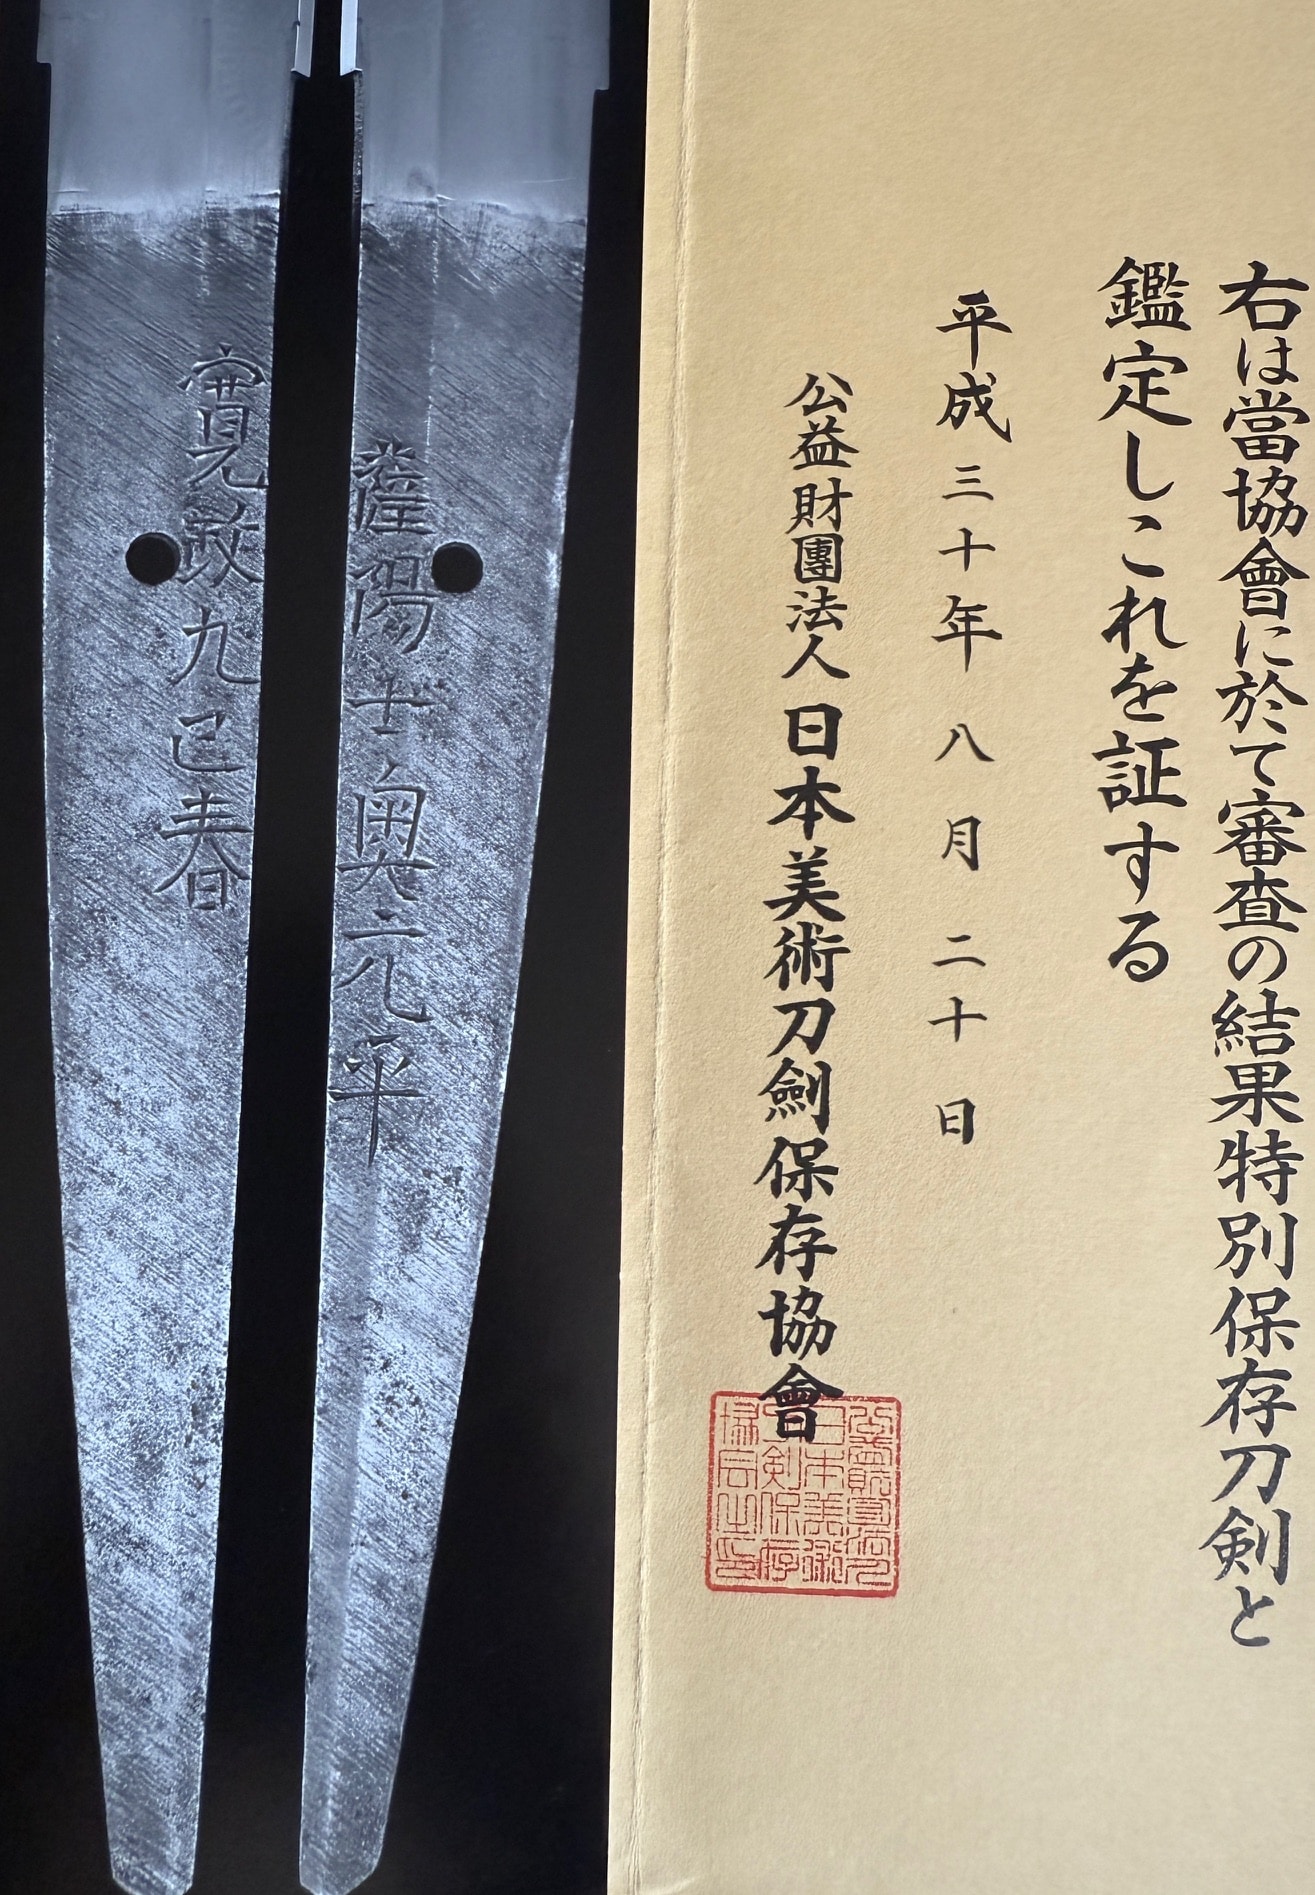 右は當協會に於て審査の結果特別保存刀剣と
鑑定しこれを証する
平成三十年八月二十日
公益財團法人日本美術刀劍保存協會
薩陽士奥元平
寛政九巳春